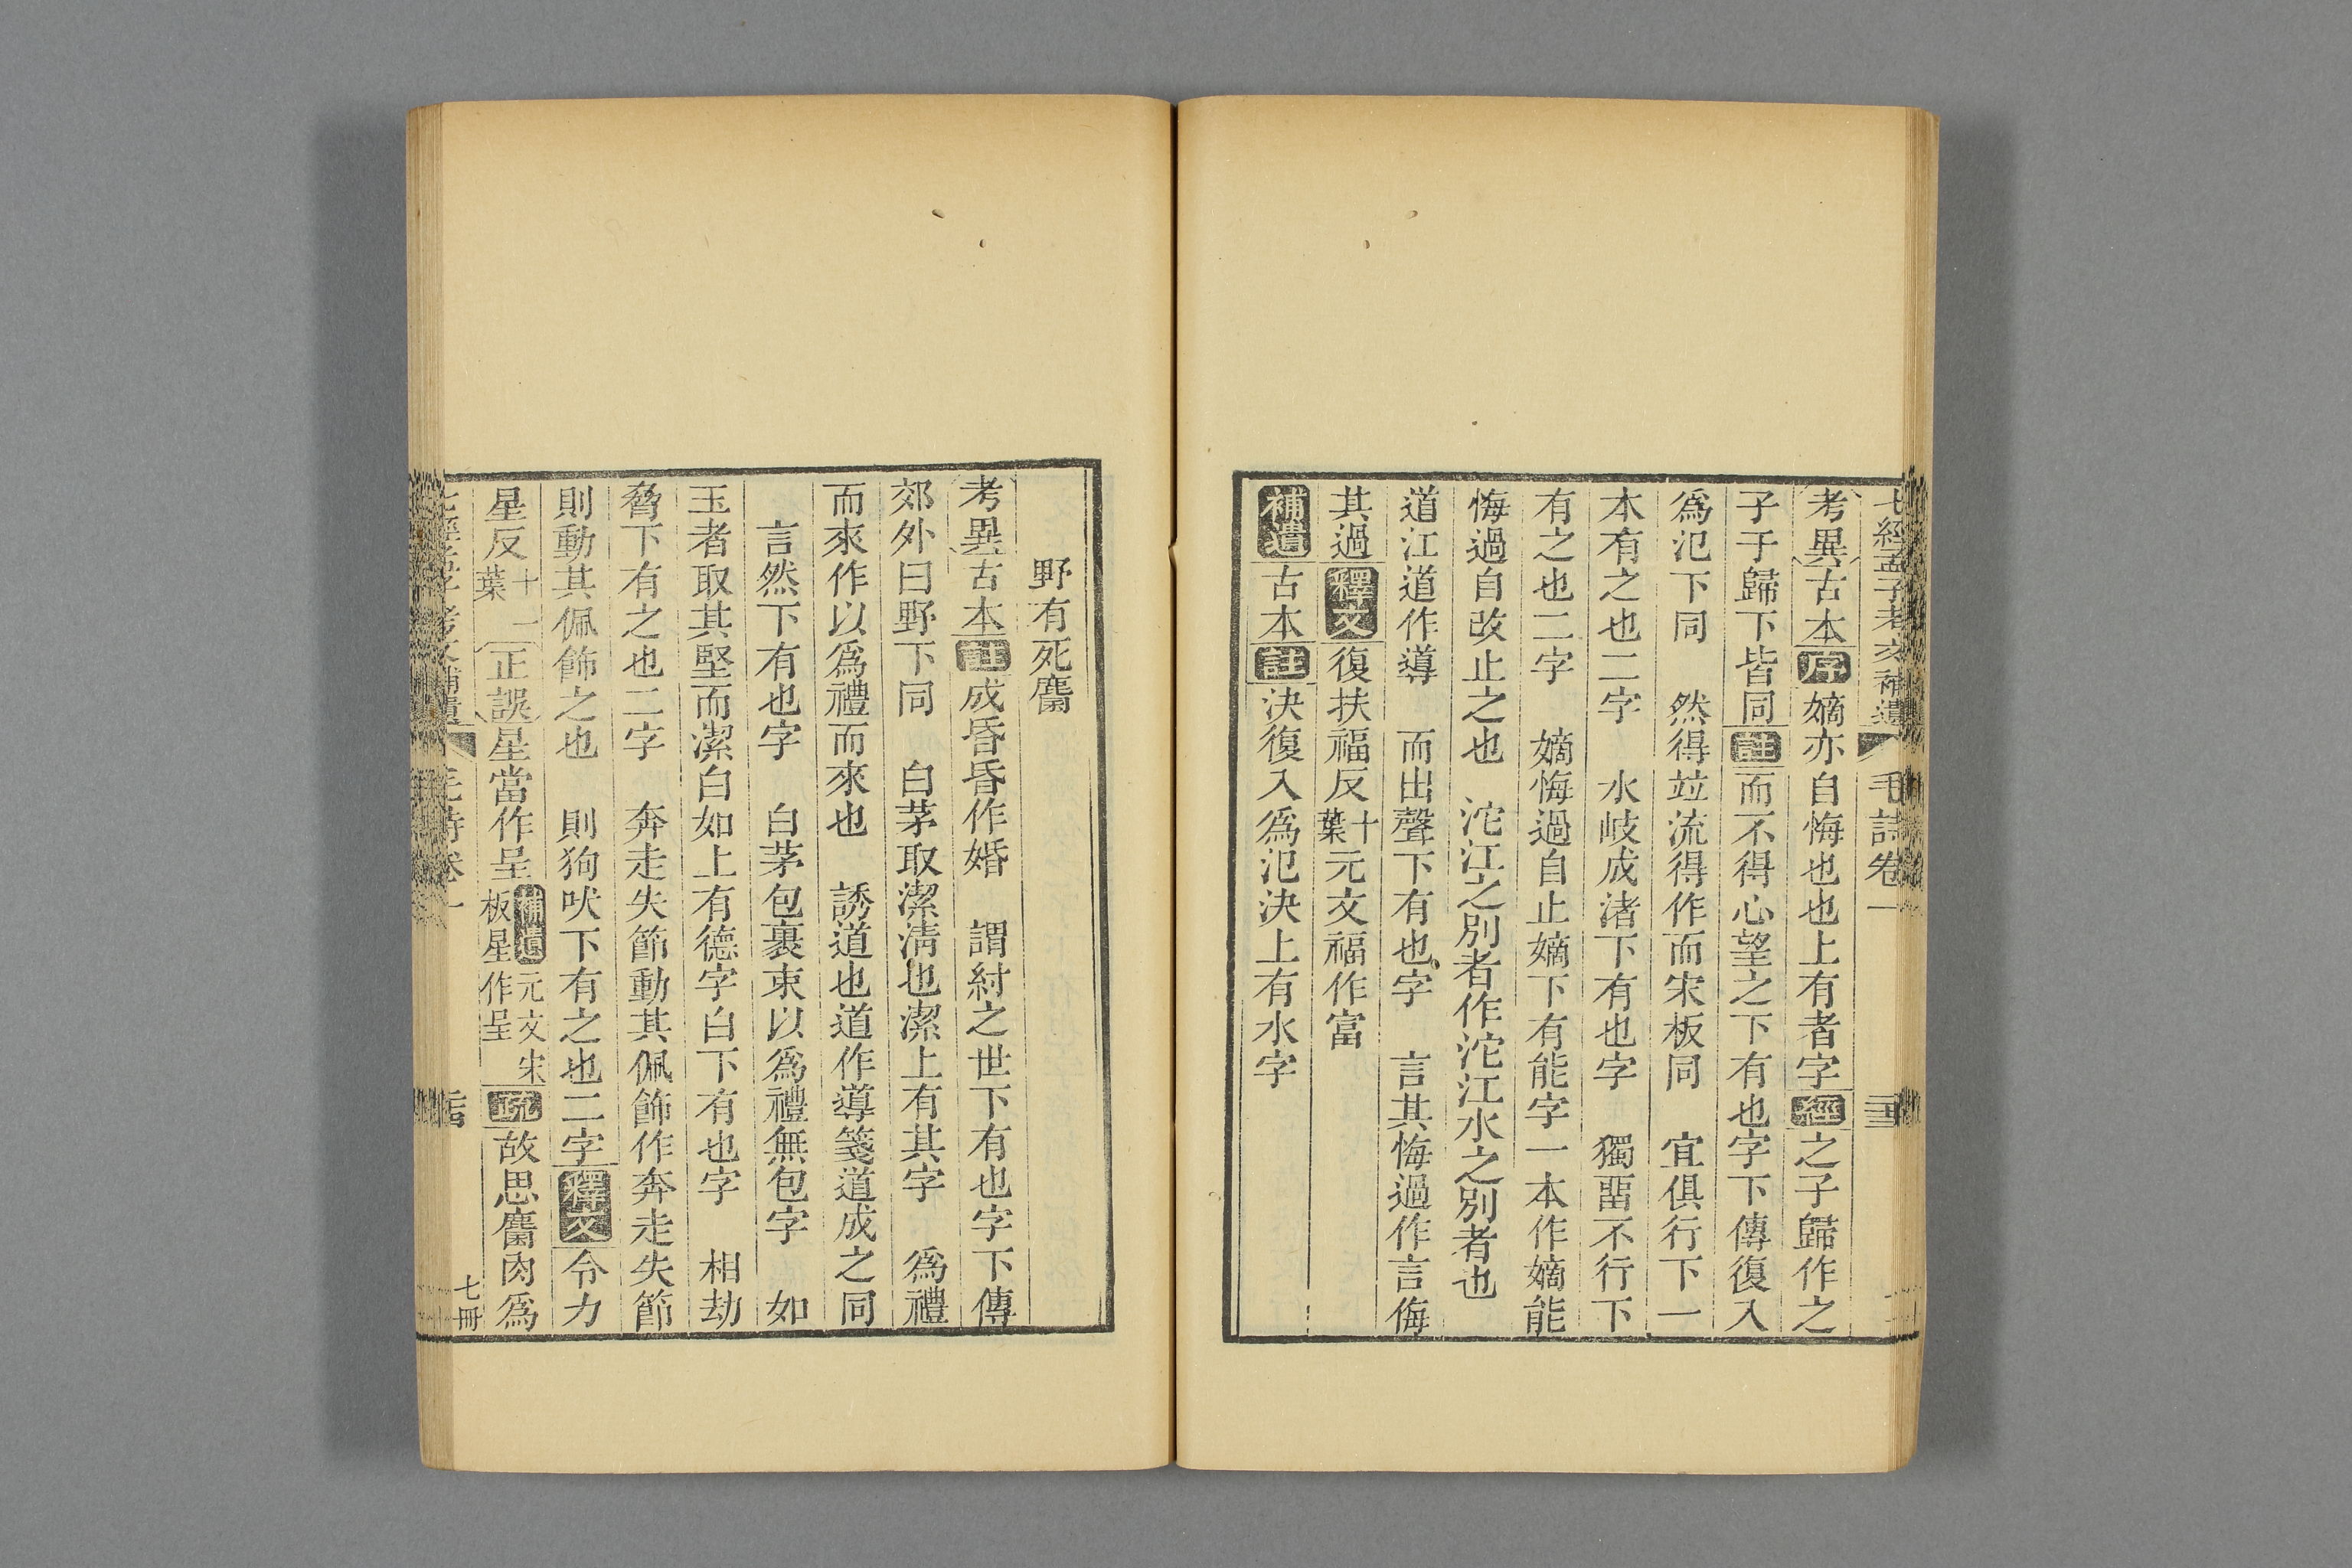 七經孟子考文補遺 毛詩卷一
考異古本序嫡亦自悔也也上有者字經之子歸作之
子于歸下皆同註而不得心望之下有也字下傳復入
爲氾下同 然得竝流得作而宋板同 宜俱行下一
本有之也二字 水岐成渚下有也字 獨畱不行下
有之也二字 嫡悔過自止嫡下有能字一本作嫡能
悔過自改止之也 沱江之別者作沱江水之別者也
道江道作導 而出聲下有也字 言其悔過作言侮
其過釋文復扶福反十葉元文福作富
補遺古本註決復入爲氾決上有水字
野有死麕
考異古本註成昏昏作婚 謂紂之世下有也字下傳
郊外曰野下同 白茅取潔清也潔上有其字 爲禮
而來作以爲禮而來也 誘道也道作導箋道成之同
言然下有也字 白茅包裹束以爲禮無包字 如
玉者取其堅而潔白如上有德字白下有也字 相劫
脅下有之也二字 奔走失節動其佩飾作奔走失節
則動其佩飾之也 則狗吠下有之也二字釋文令力
星反十一葉正誤星當作呈補遺元文宋板星作呈疏故思麕肉爲
七冊